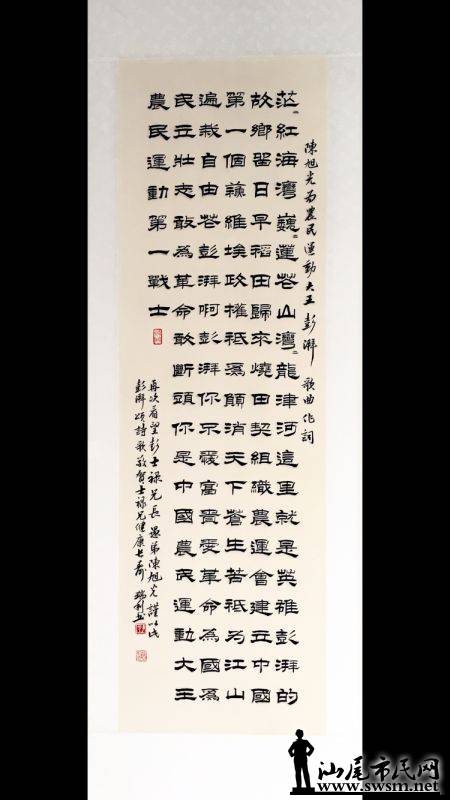 陳旭光為農民運動大王彭湃歌曲作詞
茫〻紅海灣巍〻蓮花山灣〻龍津河這里就是英雄彭湃的
故鄉留日早稻田歸來燒田契組織農運會建立中國
第一個蘇維埃政權祇為願消天下蒼生苦祇為江山
遍栽自由花彭湃啊彭湃你不愛富貴愛革命為國為
民立壯志敢為革命敢斷頭你是中國農民運動大王
農民運動第一戰士
再次看望彭士祿兄長愚弟陳旭光謹以此
彭湃頌詩歌敬賀士祿兄健康長壽 瑞利書
汕尾市民网
www.swsm.net